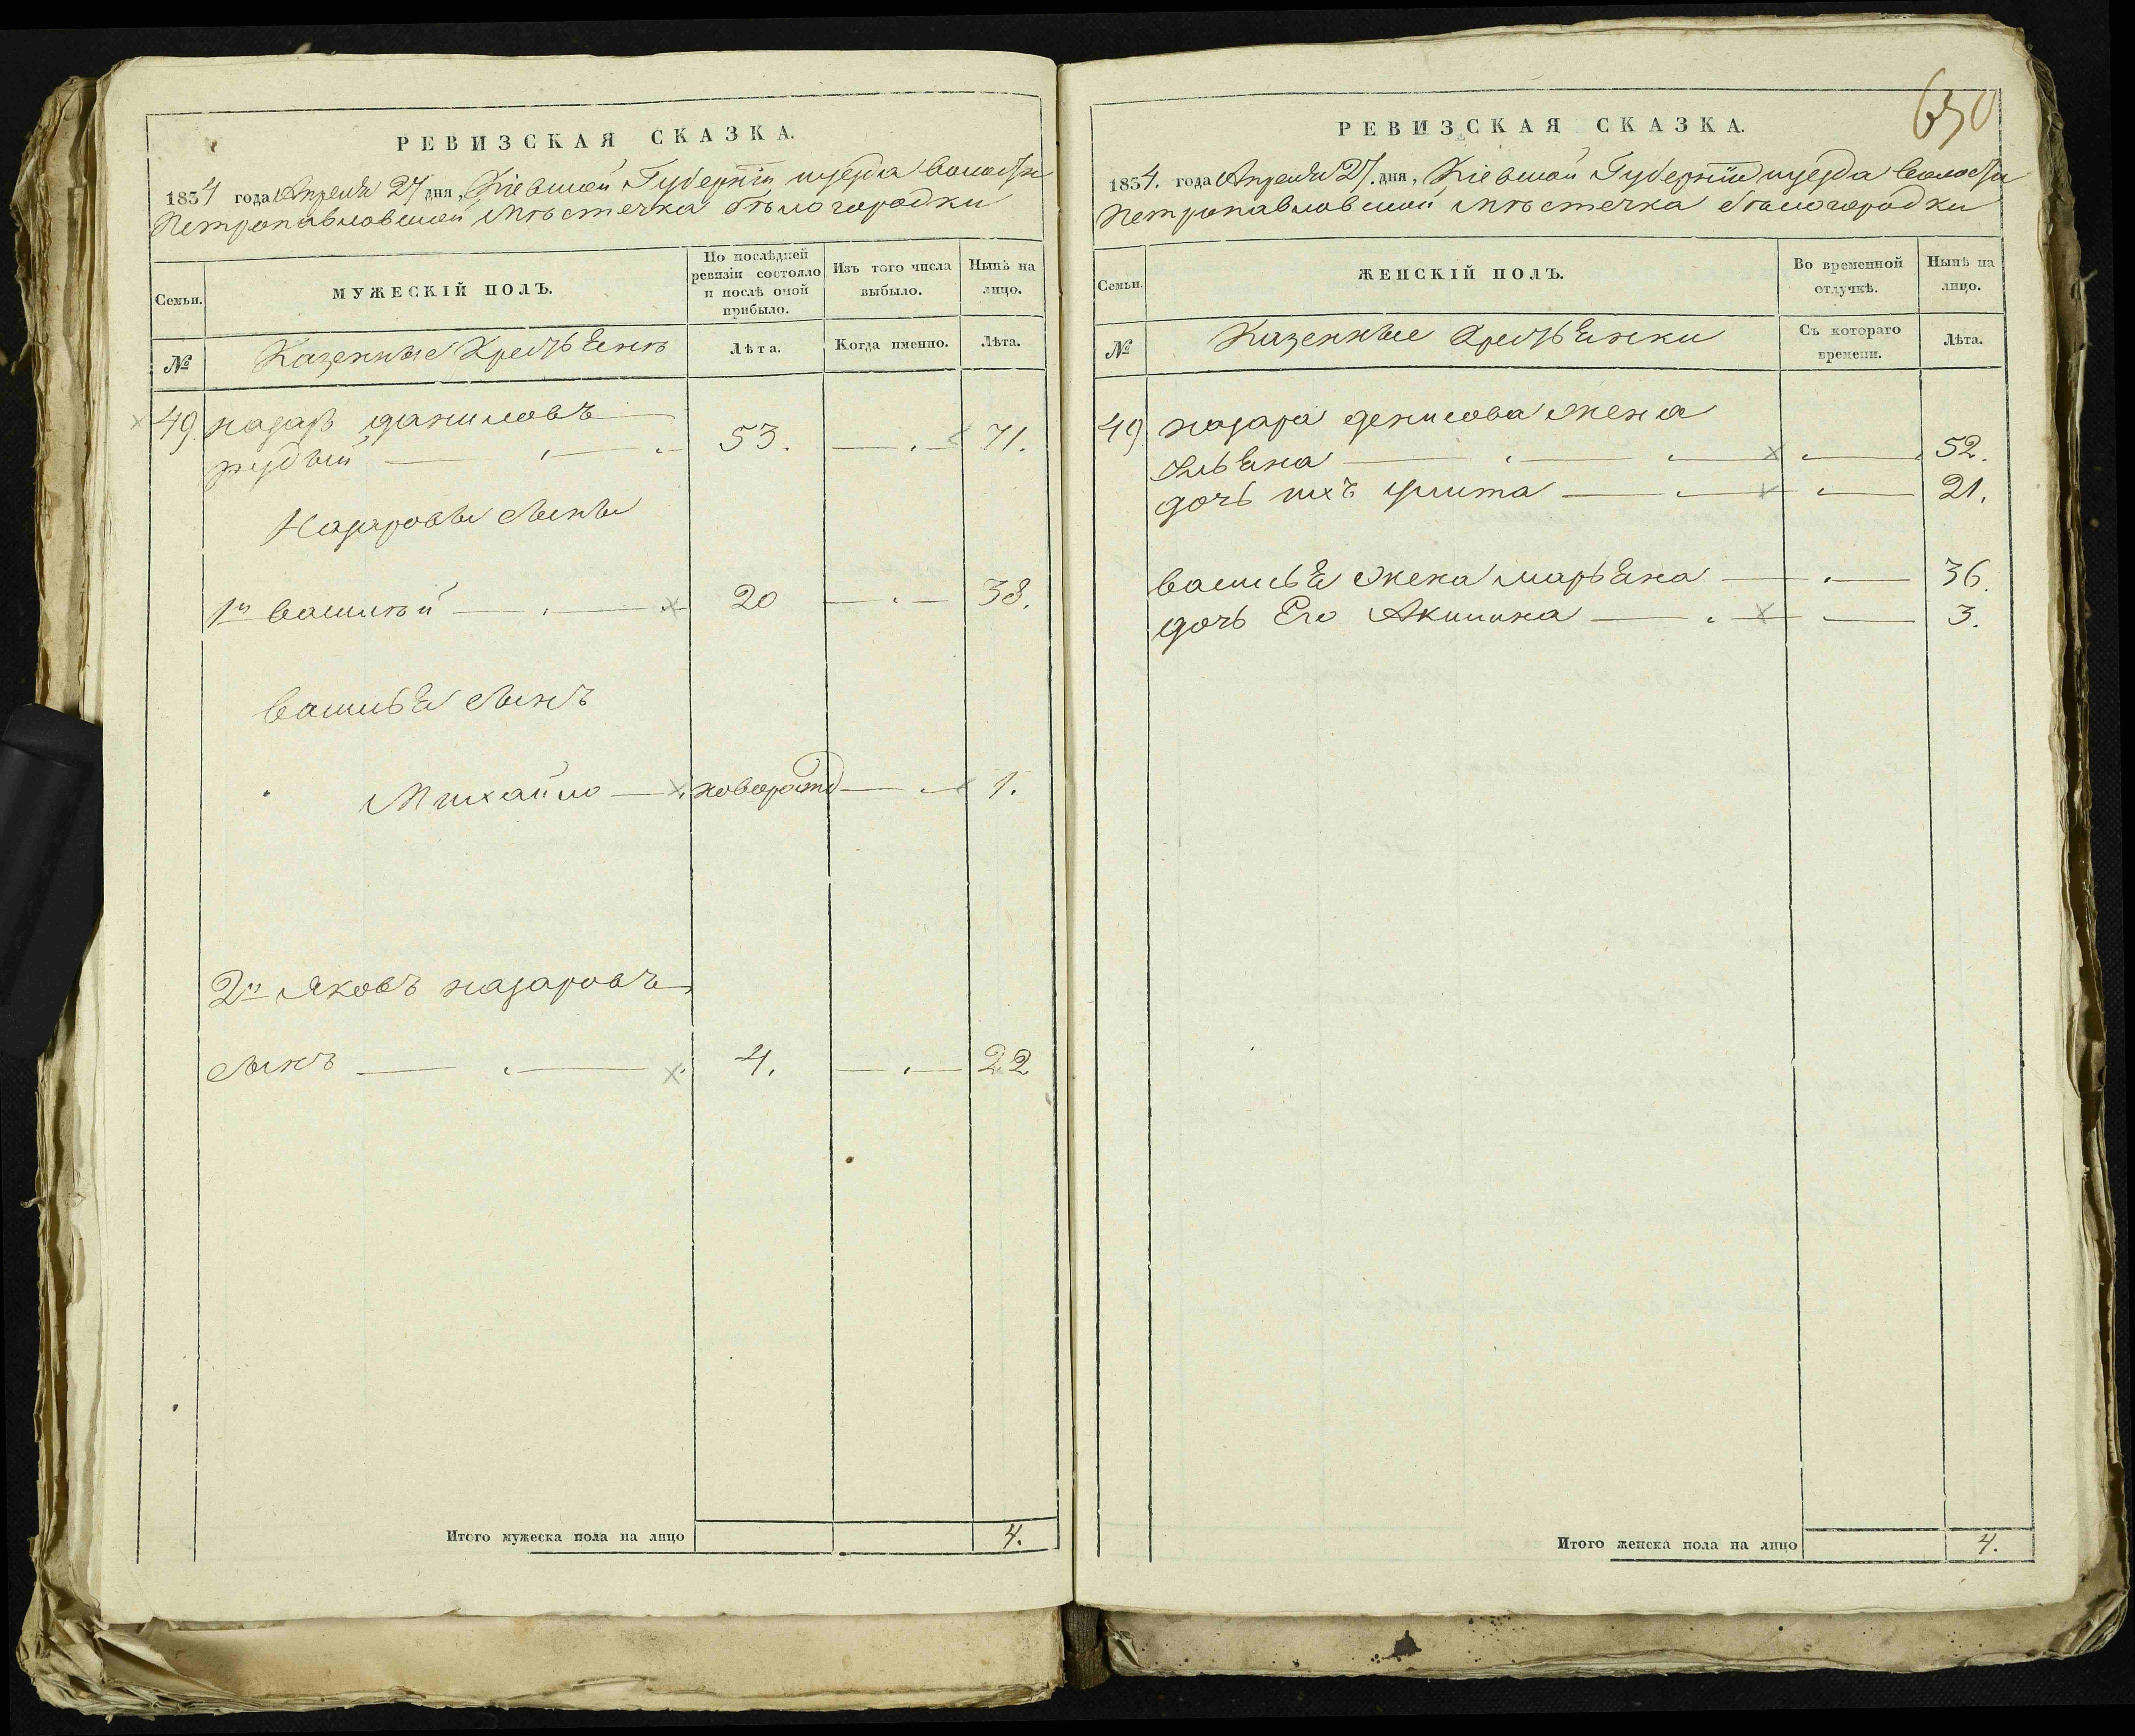 РЕВИЗСКАЯ СКАЗКА.
1854 года Апреля 27 дня, Кіевской Губерніи уезда волости
Петропавловской мѣстечка бѣлогородки
Семьи.
МУЖЕСКІЙ ПОЛЪ.
По послѣдней ревизіи состояло и послѣ оной прибыло.
Изъ того числа выбыло.
Нынѣ на лицо.
№
Казенные Крестьяне
Лѣта.
Когда именно.
Лѣта.
49 назаръ даниловъ
рудый 53. 71.
Назаровы сыны
1й василій 20 38.
василья сынъ
Михайло новорожд 1.
2й Яковъ назаровъ
сынъ 4. 22
Итого мужеска пола на лицо 4.
650
РЕВИЗСКАЯ СКАЗКА.
1854. года Апреля 27. дня, Кіевской Губерніи уезда волости
Петропавловской мѣстечка бѣлогородки
Семьи.
ЖЕНСКІЙ ПОЛЪ.
Во временной отлучкѣ.
Нынѣ на лицо.
№
Казенные Крестьянки
Съ котораго времени.
Лѣта.
49 назара денисова жена
Ульяна 52.
дочь ихъ улита 21.
василья жена марьяна 36.
дочь Его Акилина 3.
Итого женска пола на лицо 4.